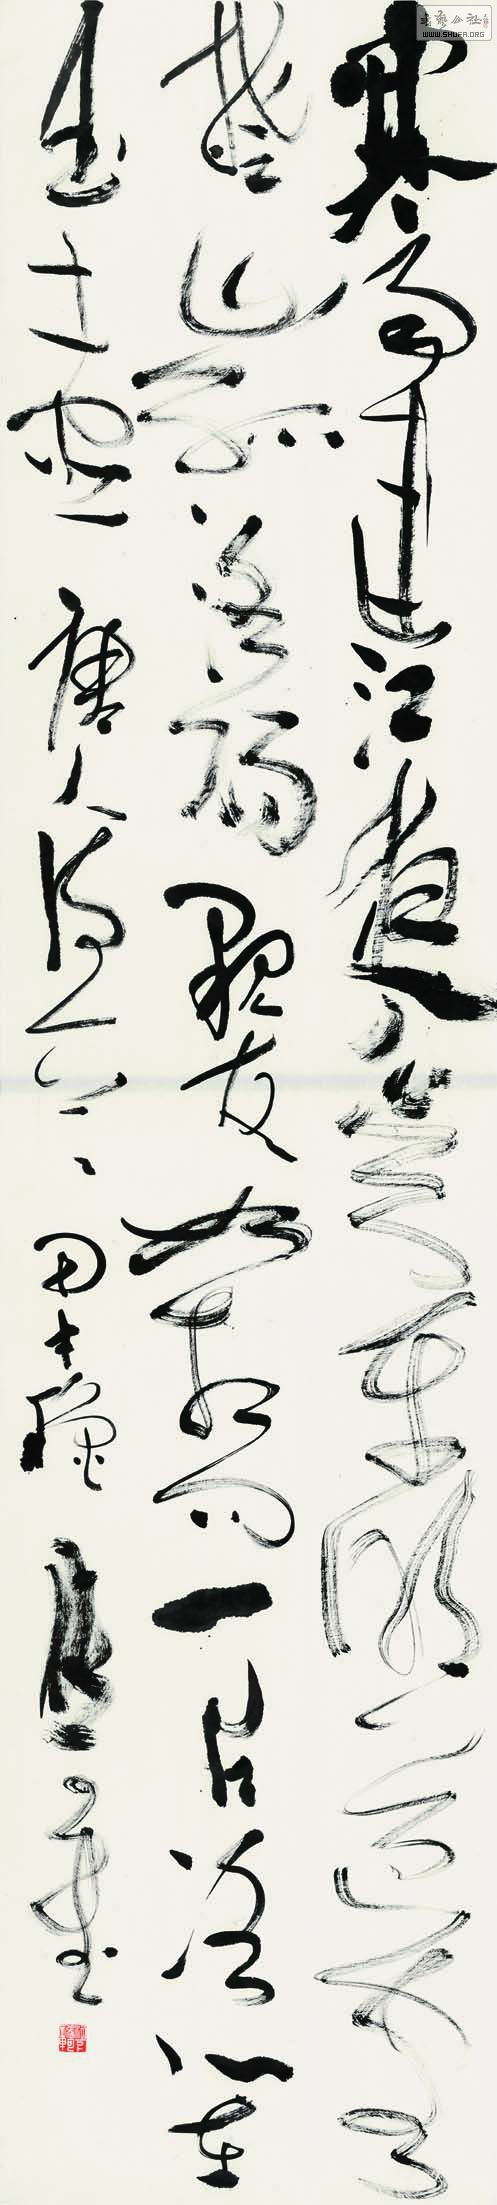 寒雨連江夜入吴平明送客
楚山孤洛陽親友如相问一片冰心在
玉壶 唐人詩一首 甲午穐
書法公社
WWW.SHUFA.ORG